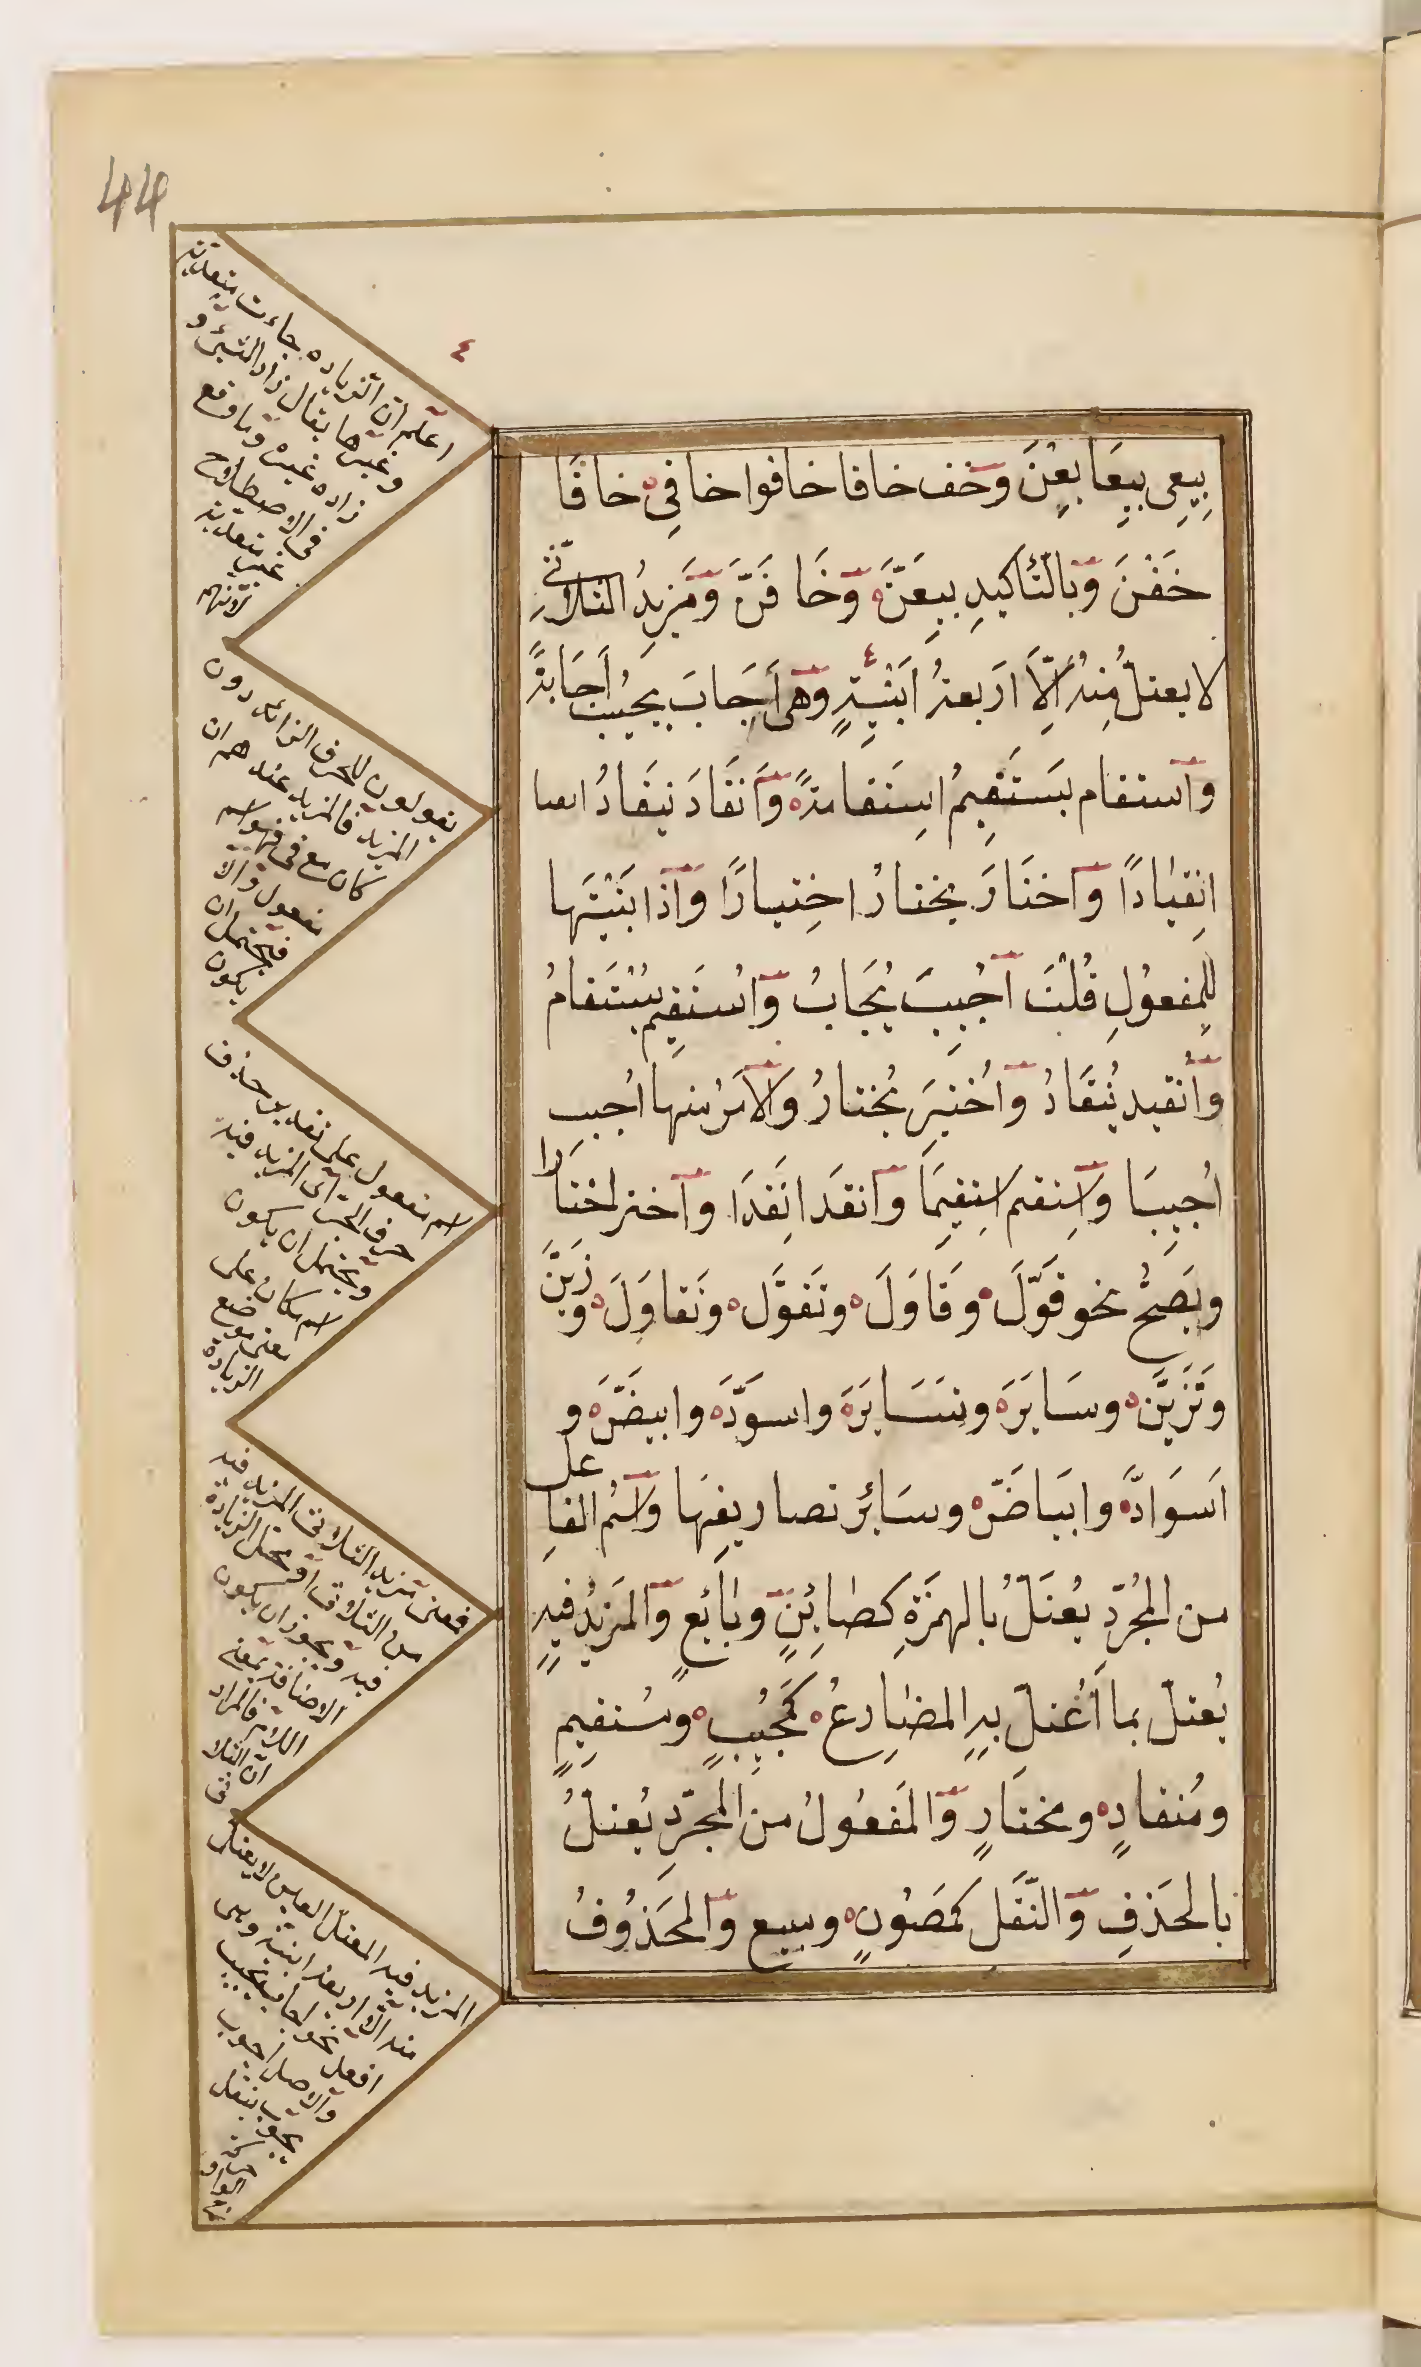 44
٤
بِيعِي بِيعَا بِعْنَ وَخف خافا خافوا خافِي خافَا
خَفْنَ وَبالتّأكيدِ بيعَنَّ وَخَافَنَّ وَمَزيدُ الثلاثيّ
لا يعتلّ مِنهُ اِلّا اَربعةُ اَبْنِيَةٍ وَهى اَجَابَ يجيبُ اجَابةً
وَاستقام يَستَقِيمُ اسِتَقامةً وَانقَادَ ينقَادُ
انِقيادًا وَاختَارَ يختارُ اختِيارًا وَاذا بَنَيْتَها
للِمفعوُلِ قُلْتَ اُجُيبَ يُجَابُ وَاسُتَقِيم يُسْتَقامُ
وَانقيد يُنقَادُ وَاخُتيَر يُختارُ وَالاَمرُ منها اجُِبِ
اجُِيبَا وَاسِتقم اسِتقِيَما وَانقَد انِقَدا وَاختر اختارا
ويَصِحُّ نحو قَوّلَ وقَاوَلَ وتَقوَّلَ وتَقاوَلَ وزَيَّنَ
وتَزَيَّنَ وسَايَرَ وتسَايَرَ واسوَدَّ وابيضَّ و
اَسوَادَّ وابيَاضَّ وسَائِر تصاريفِهَا وَاسُم الفاعل
من المجُرّدِ يُعتَلُّ بالهمزَةِ كصَائِنٍ وبَائعٍ وَالمَزيدُ فيهِ
يُعتلّ بما اعُتلّ بهِ المضَارِعُ كمجُيبٍ ومُستقيمٍ
ومُنقادٍ ومختَارٍ وَالمَفعُولُ من المجرّدِ يُعتلُّ
بالحَذفِ وَالنّقَل كمَصُونٍ ومبيع وَالمحَذوُفُ
اعلم انّ الزياده جاءت متعدية
وغيرها يقال زاد الشىء و
زاده غيره وما وقع
فى الاصطلاح
غير متعدية
لانهم
يقولون للحرف الزائد دون
المزيد فالمزيد عندهم ان
كان مع فى فهو اسم
مفعول والا
فيحتمل ان
يكون
اسم مفعول على تقدير حذف
حرف الجر اى المزيد فيه
ويحتمل ان يكون
اسم مكان على
معنى موضع
الزيادة
فمعنى مزيد الثلاثى المزيد فيه
من الثلاثى او محل الزيادة
فيه ويجوز ان يكون
الاضافة بمعنى
اللام فالمراد
ان الثلا
ثى
المزيد فيه المعتل العين لا يعتل
منه الا اربعة ابنية وهى
افعل نحو اجاب يجيب
والاصل اجوب
يجوب بنقل
حركة
الواو